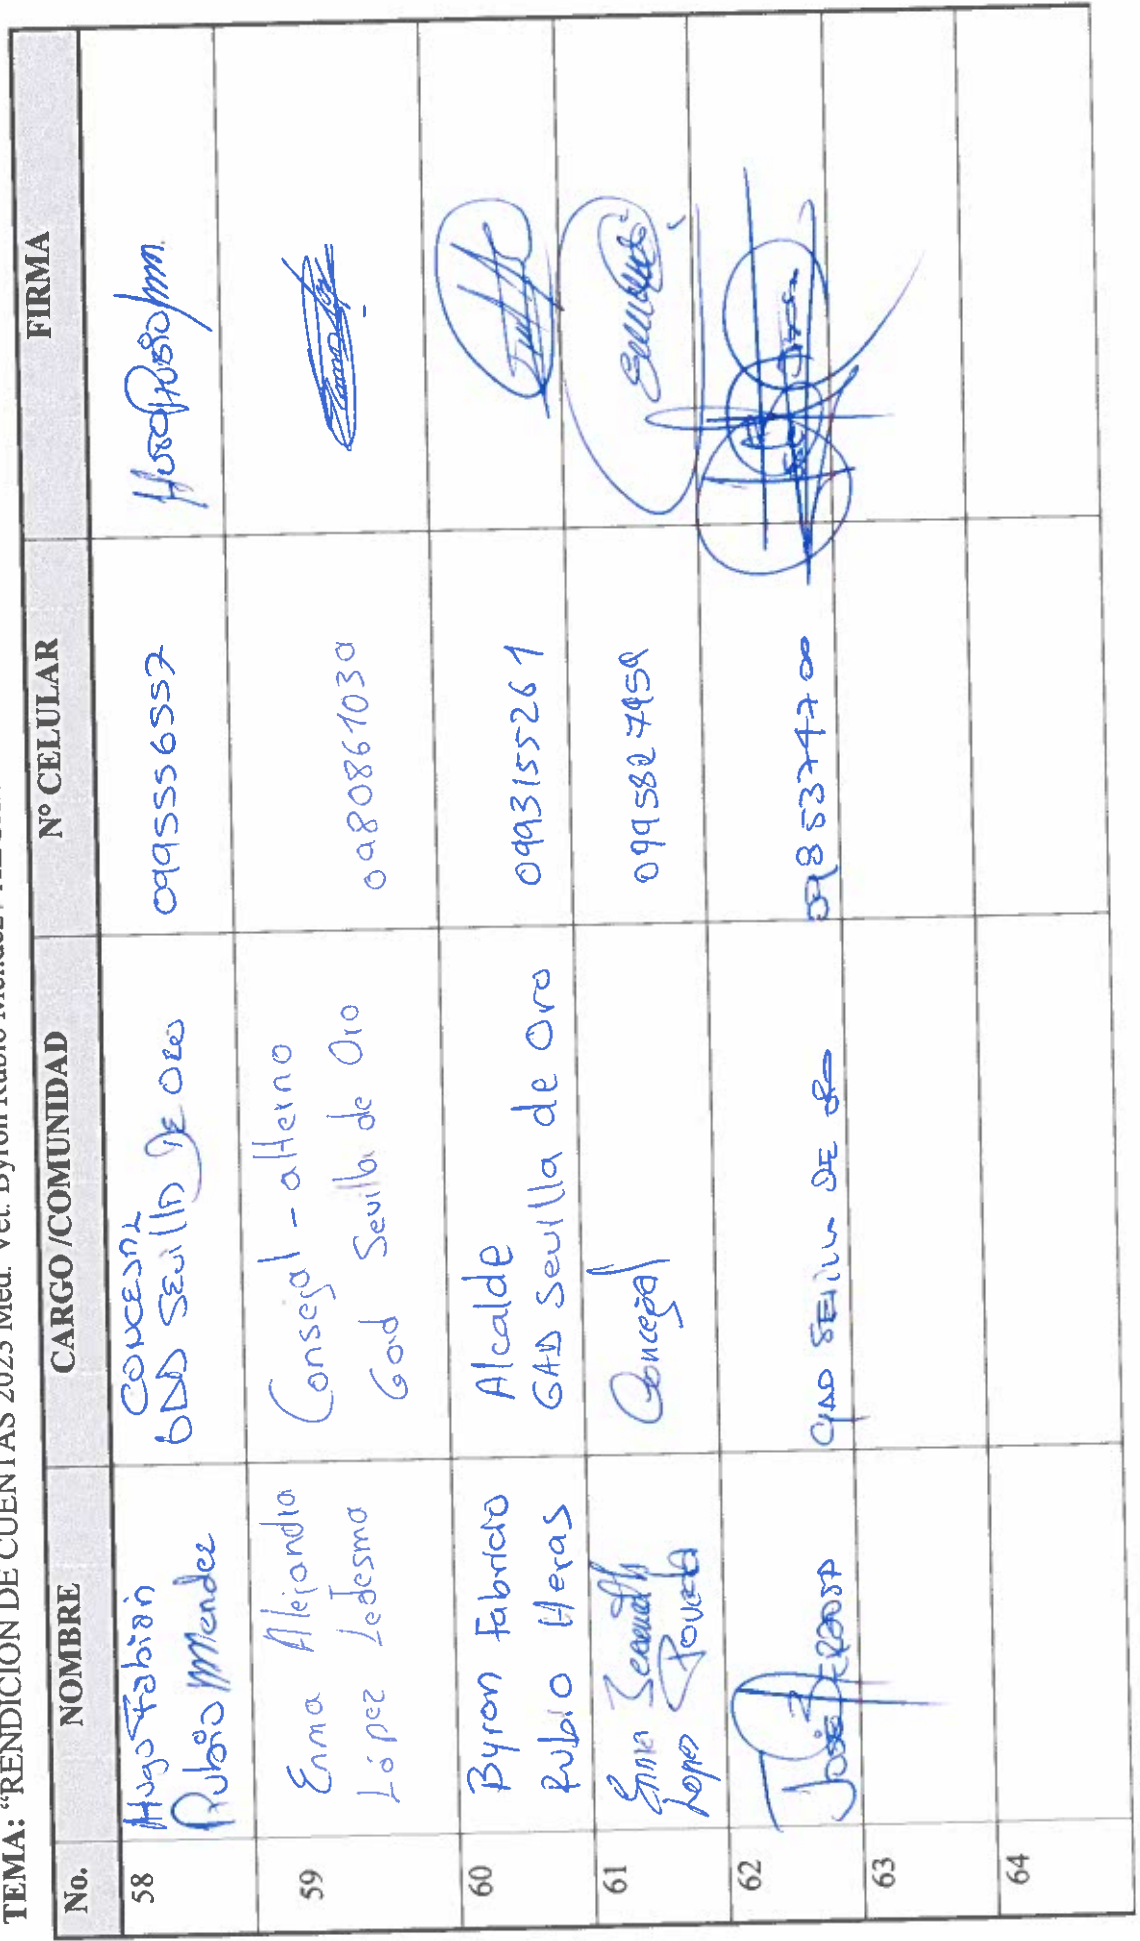 TEMA: "RENDICION DE CUENTAS 2023 Med. Vet. Byron Rubio Mendez
No. NOMBRE CARGO /COMUNIDAD N° CELULAR FIRMA
58
Hugo Fabián
Rubio Mendez
CONCEJAL
GAD Sevilla DE ORO
0995556557
59
Enma Alejandra
López Ledesma
Consejal - alterno
Gad Sevilla de Oro
0980861030
60
Byron Fabricio
Rubio Heras
Alcalde
GAD Sevilla de Oro
0993155261
61
Enma
Lopez Poveda
Concejal
62
José
GAD SEVILLA DE ORO
0985374700
63
64